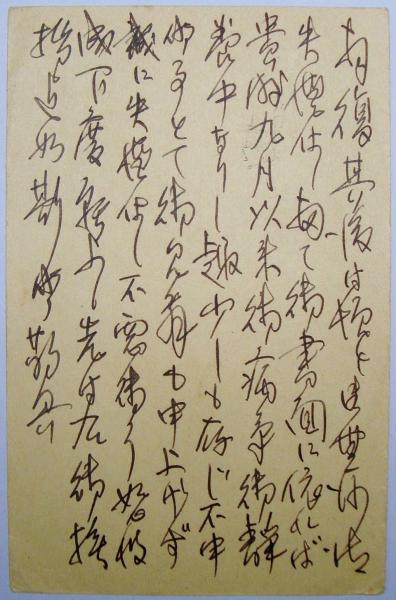 拝復其後は頓と御無沙汰
失礼仕候扨て御書面に依れば
貴殿九月以来御病気御静
養中なりし趣少しも存じ不申
御見舞も申上げず
誠に失礼仕候不悪御
成下度願上候先は右御挨
拶迄如斯 敬具